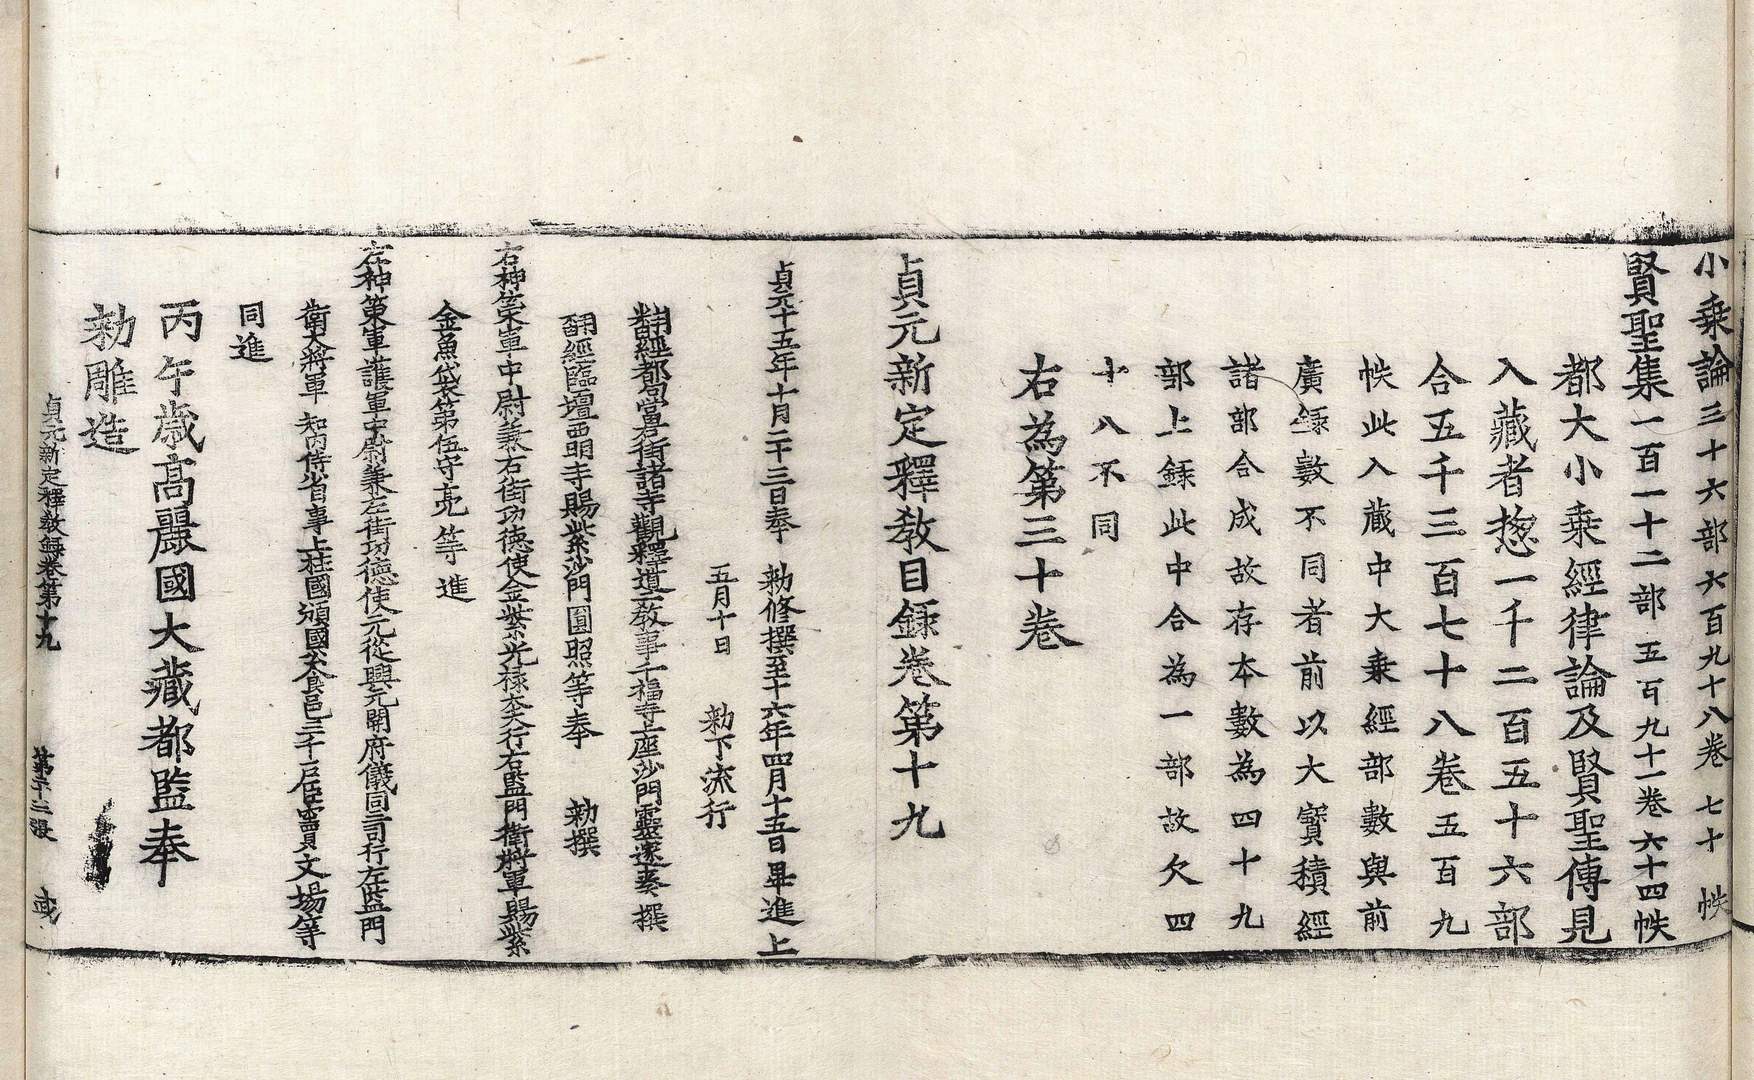 小乗論三十六部六百九十八卷 七十 帙
賢聖集一百一十二部 五百九十一卷六十四帙
都大小乗經律論及賢聖傳見
入藏者揔一千二百五十六部
合五千三百七十八卷五百九
帙此入蔵中大乗經部數與前
廣録數不同者前以大寶積經
諸部合成故存本數為四十九
部上録此中合為一部故欠四
十八不同
右為第三十卷
貞元新定釋教目録卷第十九
貞元十五年十月二十三日奉 勑修撰至十六年四月十五日畢進上
五月十日 勑下流行
翻經都勾當右街諸寺觀釋道二教事千福寺上座沙門靈邃奏撰
翻經臨壇西明寺賜紫沙門圓照等奉 勑撰
右神策軍中尉兼右街功徳使金紫光禄大夫行右監門衛將軍賜紫
金魚袋第伍守亮等進
左神策軍護軍中尉兼左街功德使元從興元開府儀同三司行左監門
衛大將軍 知内侍省事上柱國頒國公食邑三千戶臣竇文場等
同進
丙午歲高麗國大藏都監奉
勑雕造
貞元新定釋教録卷第十九 第二十二張 彧